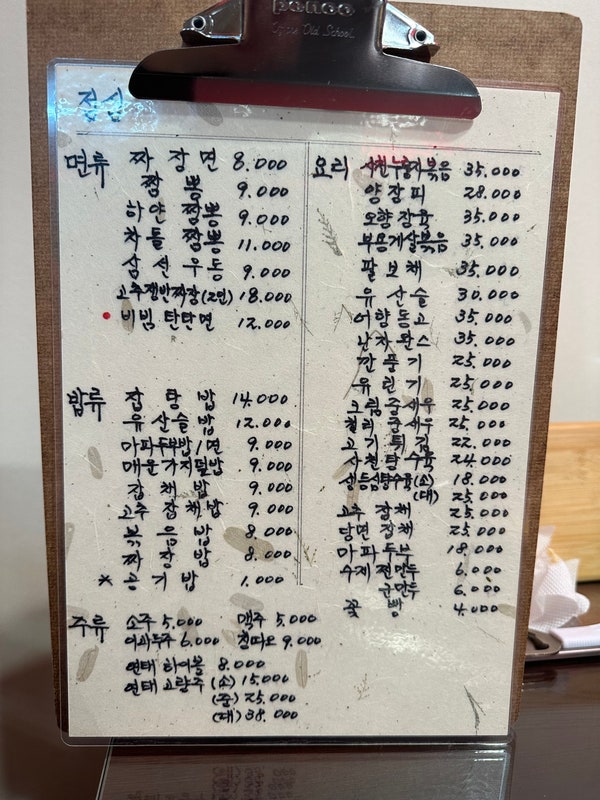 점심
면류 짜장면 8.000
짬뽕 9.000
하얀짬뽕 9.000
차돌짬뽕 11.000
삼선우동 9.000
고추쟁반짜장(2인) 18.000
비빔탄탄면 12.000
밥류 잡탕밥 14.000
유산슬밥 12.000
마파두부밥/면 9.000
매운가지덮밥 9.000
잡채밥 9.000
고추잡채밥 9.000
볶음밥 8.000
짜장밥 8.000
* 공기밥 1.000
요리 35.000
양장피 28.000
오향장육 35.000
부용게살볶음 35.000
팔보채 35.000
유산슬 30.000
어향동고 35.000
난자완스 35.000
깐풍기 25.000
유린기 25.000
크림중새우 25.000
칠리중새우 25.000
고기튀김 22.000
사천탕수육 24.000
생등심탕수육(소) 18.000
(대) 25.000
고추잡채 25.000
당면잡채 25.000
마파두부 18.000
수제찐만두 6.000
군만두 6.000
꽃빵 4.000
주류 소주 5.000 맥주 5.000
이과두주 6.000 칭따오 9.000
연태하이볼 8.000
연태고량주 (소) 15.000
(중) 25.000
(대) 38.000